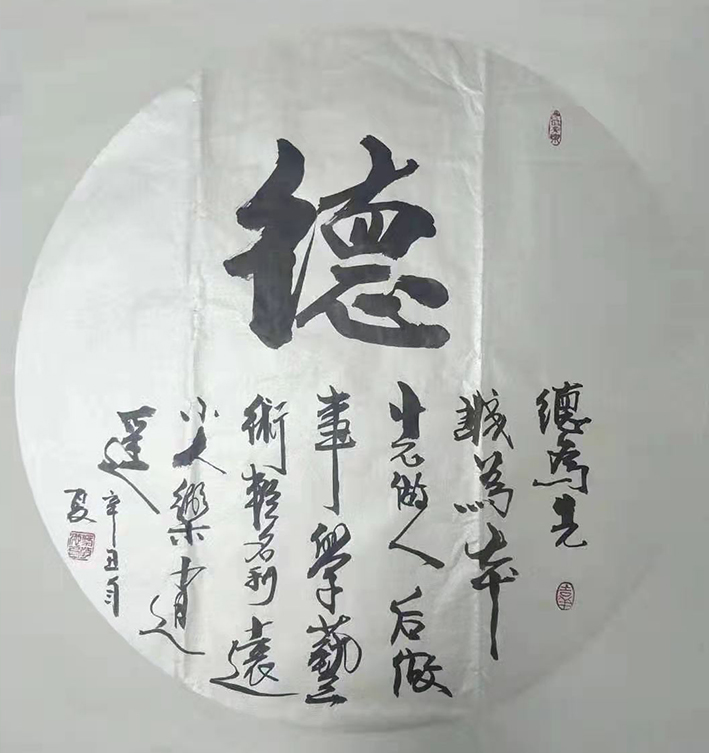 德
德為先
誠為本
先做人后做
事學藝
術輕名利遠
小人樂逍
遥
辛丑年
夏